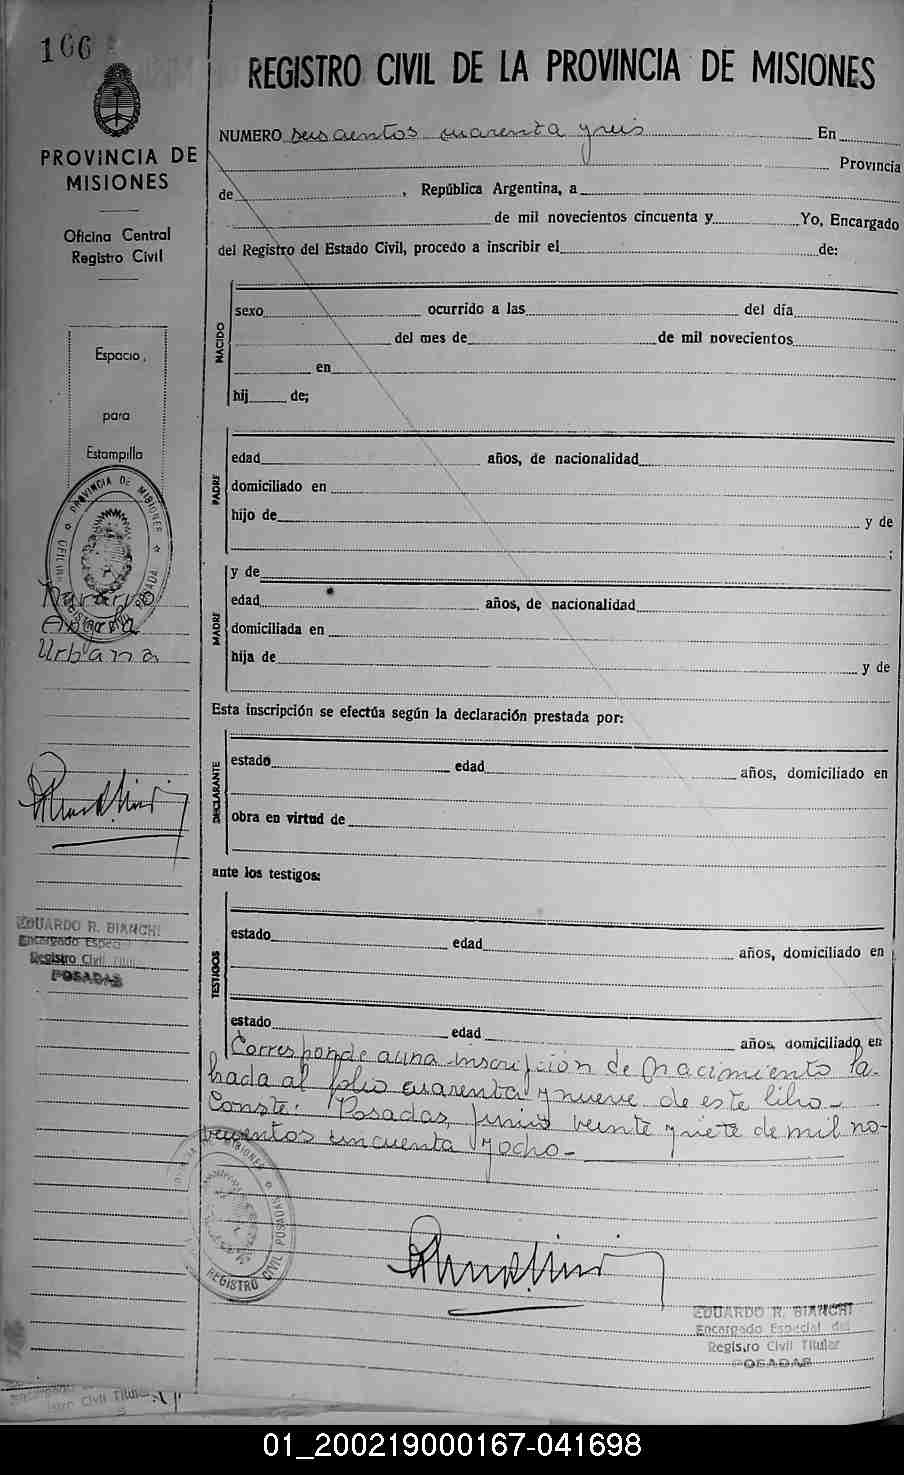 166
PROVINCIA DE
MISIONES
Oficina Central
Registro Civil
Espacio,
para
Estampilla
PROVINCIA DE MISIONES
REGISTRO CIVIL POSADAS
Naranjo
Urbana
EDUARDO R. BIANCHI
Encargado Espec
Registro Civil Titul
POSADAS
REGISTRO CIVIL DE LA PROVINCIA DE MISIONES
NUMERO seiscientos cuarenta y seis En
Provincia
de , República Argentina, a
de mil novecientos cincuenta y Yo, Encargado
del Registro del Estado Civil, procedo a inscribir el de:
NACIDO
sexo ocurrido a las del día
del mes de de mil novecientos
en
hij de;
PADRE
edad años, de nacionalidad
domiciliado en
hijo de y de
;
MADRE
y de
edad años, de nacionalidad
domiciliada en
hija de y de
Esta inscripción se efectúa según la declaración prestada por:
DECLARANTE
estado edad años, domiciliado en
obra en virtud de
ante los testigos:
TESTIGOS
estado edad años, domiciliado en
estado edad años, domiciliado en
Corresponde a una inscripción de nacimiento la-
brada al folio cuarenta y nueve de este libro-
Conste: Posadas, junio veinte y siete de mil no-
vecientos cincuenta y ocho-
MISIONES
REGISTRO CIVIL POSADAS
EDUARDO R. BIANCHI
Encargado Especial del
Registro Civil Titular
POSADAS
Civil Titular
01_200219000167-041698